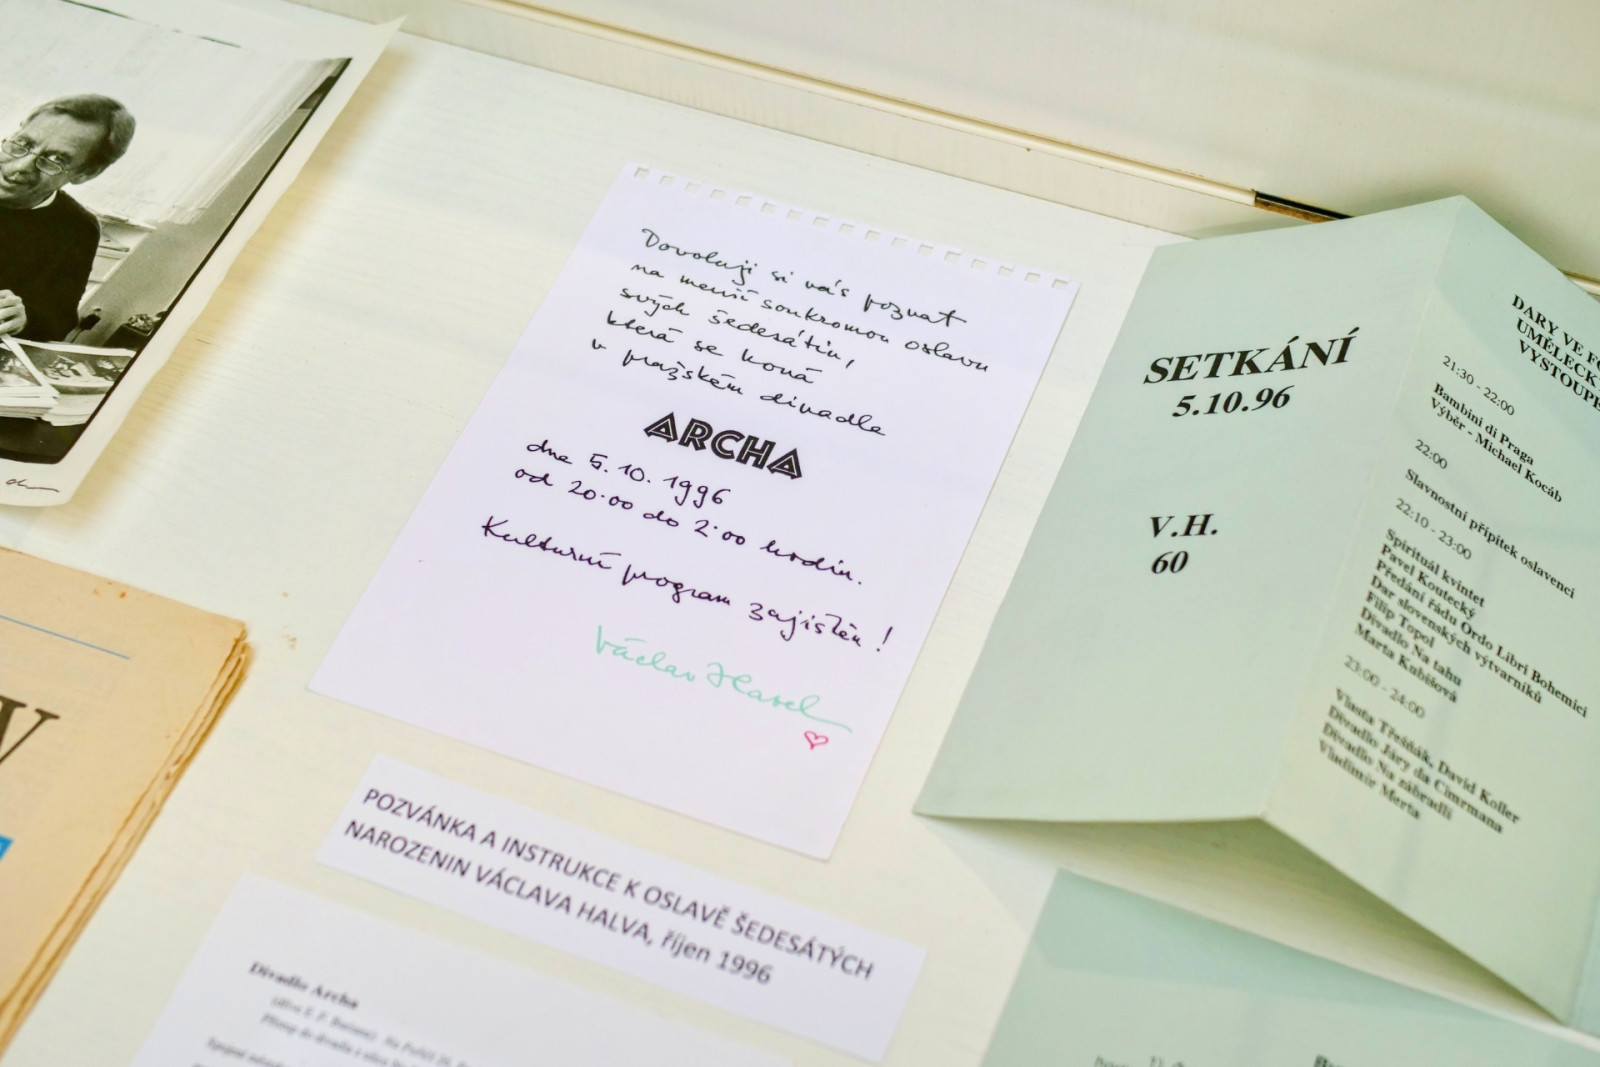 Dovoluji si vás pozvat
na menší soukromou oslavu
svých šedesátin,
která se koná
v pražském divadle
ARCHA
dne 5. 10. 1996
od 20.00 do 2.00 hodin.
Kulturní program zajištěn!
Václav Havel
POZVÁNKA A INSTRUKCE K OSLAVĚ ŠEDESÁTÝCH
NAROZENIN VÁCLAVA HALVA, říjen 1996
Divadlo Archa
SETKÁNÍ
5.10.96
V.H.
60
DARY VE
UMĚLECK
VYSTOUPE
21:30 - 22:00
Bambini di Praga
Výběr - Michael Kocáb
22:00
Slavnostní přípitek oslavenci
22:10 - 23:00
Spirituál kvintet
Pavel Koutecký
Předání řádu Ordo Libri Bohemici
Dar slovenských výtvarníků
Filip Topol
Divadlo Na tahu
Marta Kubišová
23:00 - 24:00
Vlasta Třešňák, David Koller
Divadlo Járy da Cimrmana
Divadlo Na zábradlí
Vladimír Merta